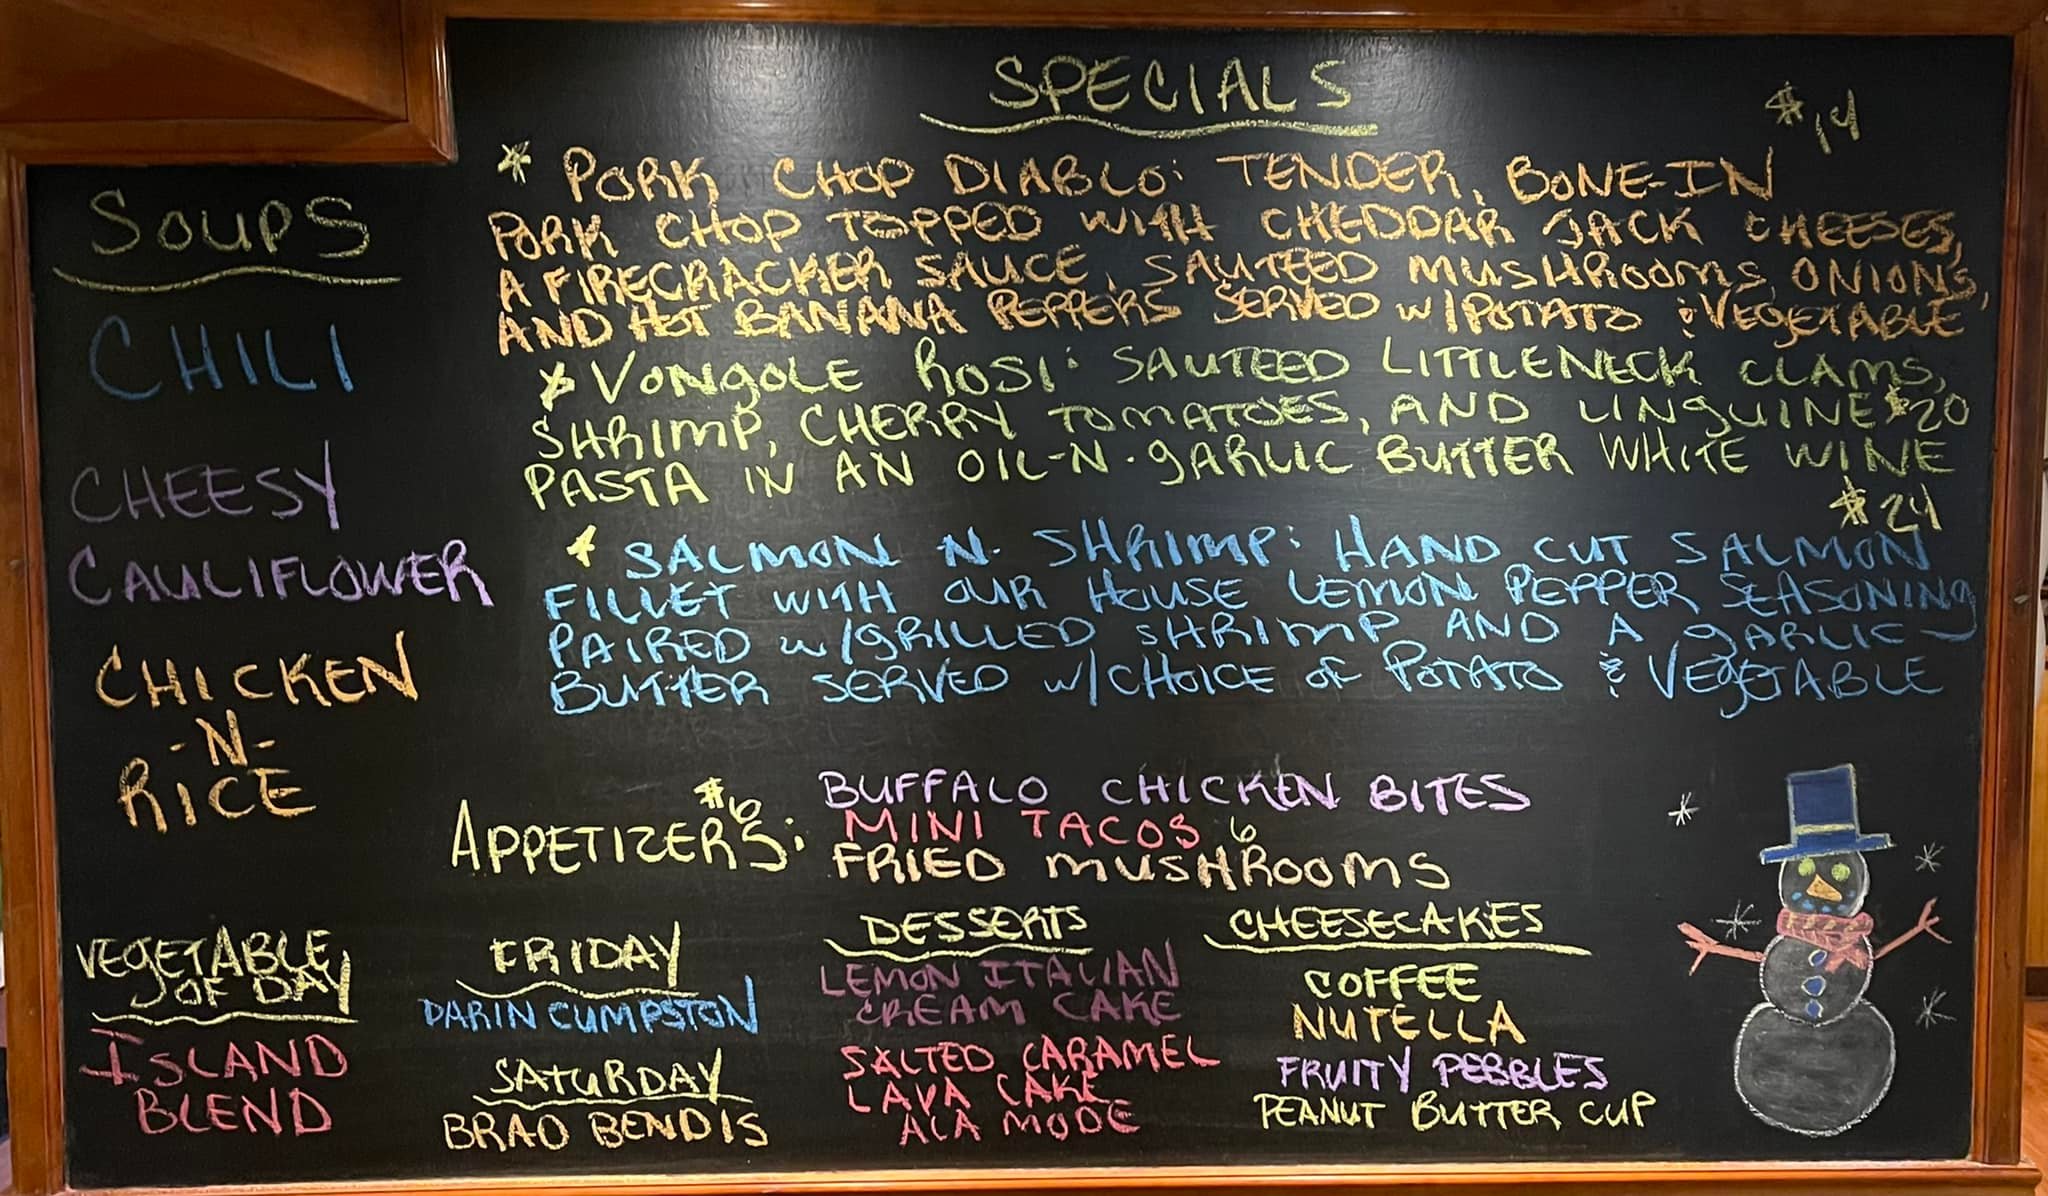 SPECIALS
$14
* PORK CHOP DIABLO: TENDER, BONE-IN
PORK CHOP TOPPED WITH CHEDDAR JACK CHEESES,
A FIRECRACKER SAUCE, SAUTEED MUSHROOMS, ONIONS,
AND HOT BANANA PEPPERS SERVED W/POTATO & VEGETABLE
* VONGOLE ROSI: SAUTEED LITTLENECK CLAMS,
SHRIMP, CHERRY TOMATOES, AND LINGUINE $20
PASTA IN AN OIL-N-GARLIC BUTTER WHITE WINE
$24
* SALMON N. SHRIMP: HAND CUT SALMON
FILLET WITH OUR HOUSE LEMON PEPPER SEASONING
PAIRED W/GRILLED SHRIMP AND A GARLIC-
BUTTER SERVED W/CHOICE OF POTATO & VEGETABLE
SOUPS
CHILI
CHEESY
CAULIFLOWER
CHICKEN
-N-
RICE
APPETIZERS: $6
BUFFALO CHICKEN BITES
MINI TACOS 6
FRIED MUSHROOMS
VEGETABLE
OF DAY
ISLAND
BLEND
FRIDAY
DARIN CUMPSTON
SATURDAY
BRAD BENDIS
DESSERTS
LEMON ITALIAN
CREAM CAKE
SALTED CARAMEL
LAVA CAKE
ALA MODE
CHEESECAKES
COFFEE
NUTELLA
FRUITY PEBBLES
PEANUT BUTTER CUP